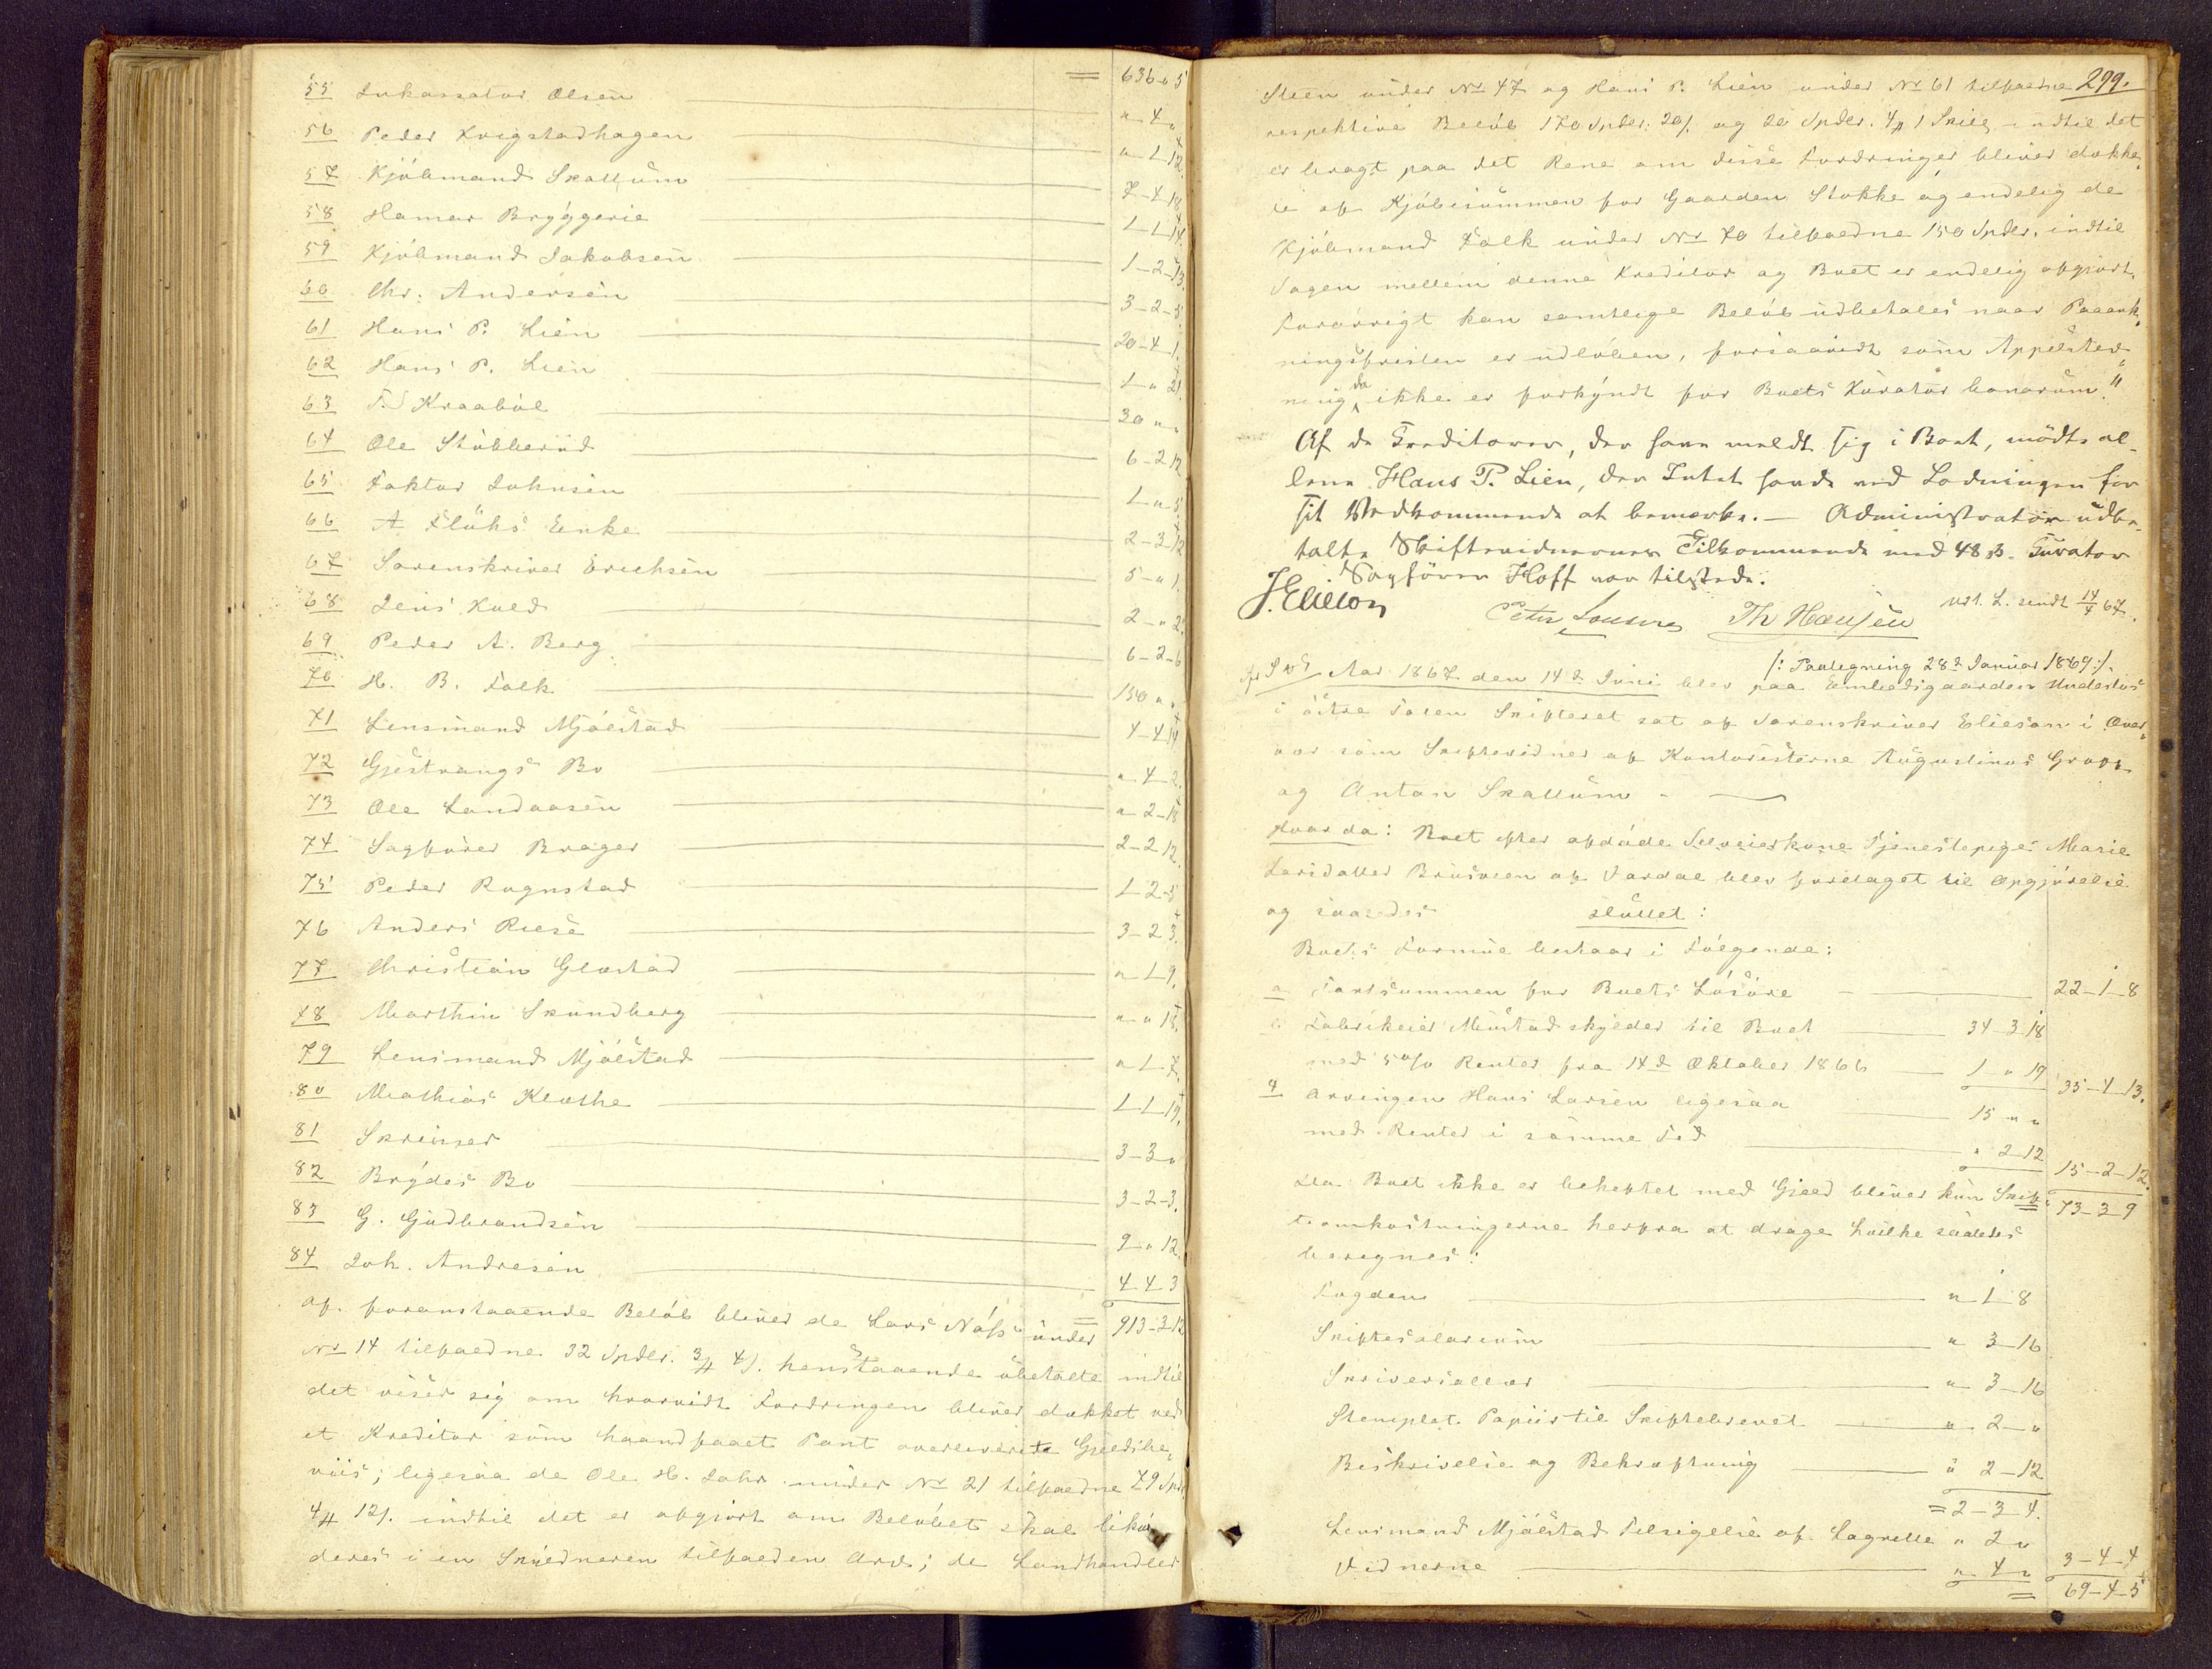 = 636 " 5
55 Inkassator Olsen " 4 "
56 Peder Kvigstadhagen " 1 12.
57 Kjöbmand Skallum 7-4 18
58 Hamar Bryggerie 1-1 14.
59 Kjöbmand Jakobsen 1-2-13.
60 Chr: Andersen 3-2-5.
61 Hans P. Lien 20-4-1.
62 Hans P. Lien 1 " 21.
63 Kraaböl 30 " "
64 Ole Stubberud 6-2 12
65 Faktor Johnsen 1 " 5.
66 A. Flühs Enke 2-3-12
67 Sorenskriver Erichsen 5-"1.
68 Jens Kuld 2-"2.
69 Peder A. Berg 6-2-6
70 H. B. Falk 150 " "
71 Lensmand Mjölstad 4-4 14
72 Gjestvangs Bo " 4-2.
73 Ole Landaasen " 2-18
74 Sagförer Brager 2-2 12.
75 Peder Rognstad 1-2-5
76 Anders Riese 3-2 3.
77 Christian Glæstad " 1 9.
78 Marthin Skundberg " " 18.
79 Lensmand Mjölstad " 1-7.
80 Mathias Klæthe 1-1 19.
81 Skeiner 3-3 "
82 Brydes Bo 3-2-3.
83 G. Gudbrandsen 9 " 12.
84 Joh. Andresen 4-4 3
Af foranstaaende Beløb bliver de Lars Næss under = 913-3 12
Nr 14 tilfaldne 32 Spdlr. 3 ℔ 4 s. henstaaende ubetalte indtil
det viser sig om hvorvidt Fordringen bliver dækket ved
et Kreditor som haandfaaet Pant overleveret Gjeldsbe„
viis; ligesaa de Ole H. Lohr under Nr 21 tilfaldne 79 Spd.
4 ℔ 12 s. indtil det er afgjort om Beløbet skal likvi
deres i en Skyldneren tilfalden Arv; de Landhandler
299.
Steen under Nr 47 og Hans P. Lien under Nr 61 tilfaldne
respektive Beløb 170 Spdlr: 20 s. og 20 Spdlr. 4 ℔ 1 Skill, indtil det
er bragt paa det Rene om disse Fordringer bliver dække„
de af Kjøbesummen for Gaarden Stokke og endelig de
Kjøbmand Falk under Nr 70 tilfaldne 150 Spdlr. indtil
Sagen mellem denne Kreditor og Boet er endelig afgjort.
Forøvrigt kan samtlige Beløb udbetales naar Paaank„
ningsfristen er udløben, forsaavidt som Appelstev„
ning da ikke er forkyndt for Boets Kurator bonorum."
Af de Creditorer, der have meldt sig i Boet, mødte al-
lene Hans P. Lien, der Intet havde ved Lodningen for
sit Vedkommende at bemærke. — Administrator udbe-
talte Skiftevidnernes Tilkommende med 48 ß. Curator
Sagfører Hoff var tilstede.
J. Elieson Th Hansen
Udl. L. sendt 14/4 67.
/: Paalegning 28de Januar 1869 :/
Aar 1867 den 14de Juni blev paa Embedsgaarden Underløs
i Østre Toten Skifteret sat af Sorenskriver Elieson i Over„
vær som Skiftevidner af Kontoristerne Augustinus Grøpp
og Anton Skallum.
Hvor da: Boet efter afdøde Selveierkone Tjenestepige Marie
Larsdatter Brusveen af Vardal blev foretaget til Opgjørelse
og saaledes sluttet:
Boets Formue bestaar i Følgende:
a Taxtsummen for Boets Løsøre 22-1-8
b Fabrikeier Mustad skylder til Boet 34-3 18
med 5 o/o Renter fra 14de Oktober 1866 1 " 19 35-4-13.
c Arvingen Hans Larsen ligesaa 15 " "
med Renter i samme Tid " 2 12 15-2-12.
Da Boet ikke er beheftet med Gjeld bliver kun Skif„ 73-3 9
teomkostningerne herfra at drage hvilke saaledes
beregnes:
Fogden " 1 8
Skiftesalarium " 3-16
Skriversallær " 3-16
Stemplet Papiir til Skiftebrevet " 2-"
Beskrivelse og Bekræftning " 2-12
= 2-3-4.
Lensmand Mjölstad Tilsigelse af Lagrette " 2 "
Vidnerne " 4 " 3-4-4
= 69-4-5